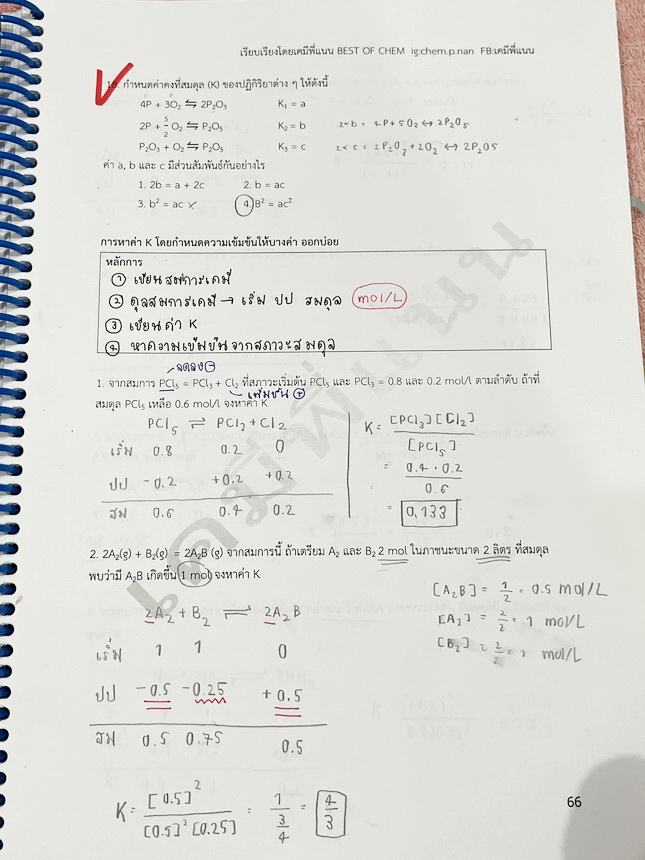 เรียบเรียงโดยเคมีพี่แนน BEST OF CHEM ig:chem.p.nan FB:เคมีพี่แนน
18. กำหนดค่าคงที่สมดุล (K) ของปฏิกิริยาต่าง ๆ ให้ดังนี้
4P + 3O₂ ⇋ 2P₂O₃ K₁ = a
2P + 5/2 O₂ ⇋ P₂O₅ K₂ = b 2×b = 4P+5O₂ ↔ 2P₂O₅
P₂O₃ + O₂ ⇋ P₂O₅ K₃ = c 2×c = 2P₂O₃+2O₂ ↔ 2P₂O5
ค่า a, b และ c มีส่วนสัมพันธ์กันอย่างไร
1. 2b = a + 2c 2. b = ac
3. b² = ac × 4. B² = ac²
การหาค่า K โดยกำหนดความเข้มข้นให้บางค่า ออกบ่อย
หลักการ
① เขียนสมการเคมี
② ดุลสมการเคมี → เริ่ม ปป สมดุล mol/L
③ เขียนค่า K
④ หาความเข้มข้นจากสภาวะสมดุล
ลดลง ⊖
1. จากสมการ PCl₅ = PCl₃ + Cl₂ ที่สภาวะเริ่มต้น PCl₅ และ PCl₃ = 0.8 และ 0.2 mol/l ตามลำดับ ถ้าที่
เพิ่มขึ้น ⊕
สมดุล PCl₅ เหลือ 0.6 mol/l จงหาค่า K
PCl₅ ⇌ PCl₃ + Cl₂
เริ่ม 0.8 0.2 0
ปป -0.2 +0.2 +0.2
สม 0.6 0.4 0.2
K = [PCl₃][Cl₂]
[PCl₅]
= 0.4 · 0.2
0.6
= 0.133
2. 2A₂(g) + B₂(g) = 2A₂B (g) จากสมการนี้ ถ้าเตรียม A₂ และ B₂ 2 mol ในภาชนะขนาด 2 ลิตร ที่สมดุล
พบว่ามี A₂B เกิดขึ้น 1 mol จงหาค่า K
[A₂B] = 1/2 = 0.5 mol/L
[A₂] = 2/2 = 1 mol/L
[B₂] = 2/2 = 1 mol/L
2A₂ + B₂ ⇌ 2A₂B
เริ่ม 1 1 0
ปป -0.5 -0.25 +0.5
สม 0.5 0.75 0.5
K = [0.5]² = 1 = 4
[0.5]²[0.25] 3/4 3
66
เคมีพี่แนน